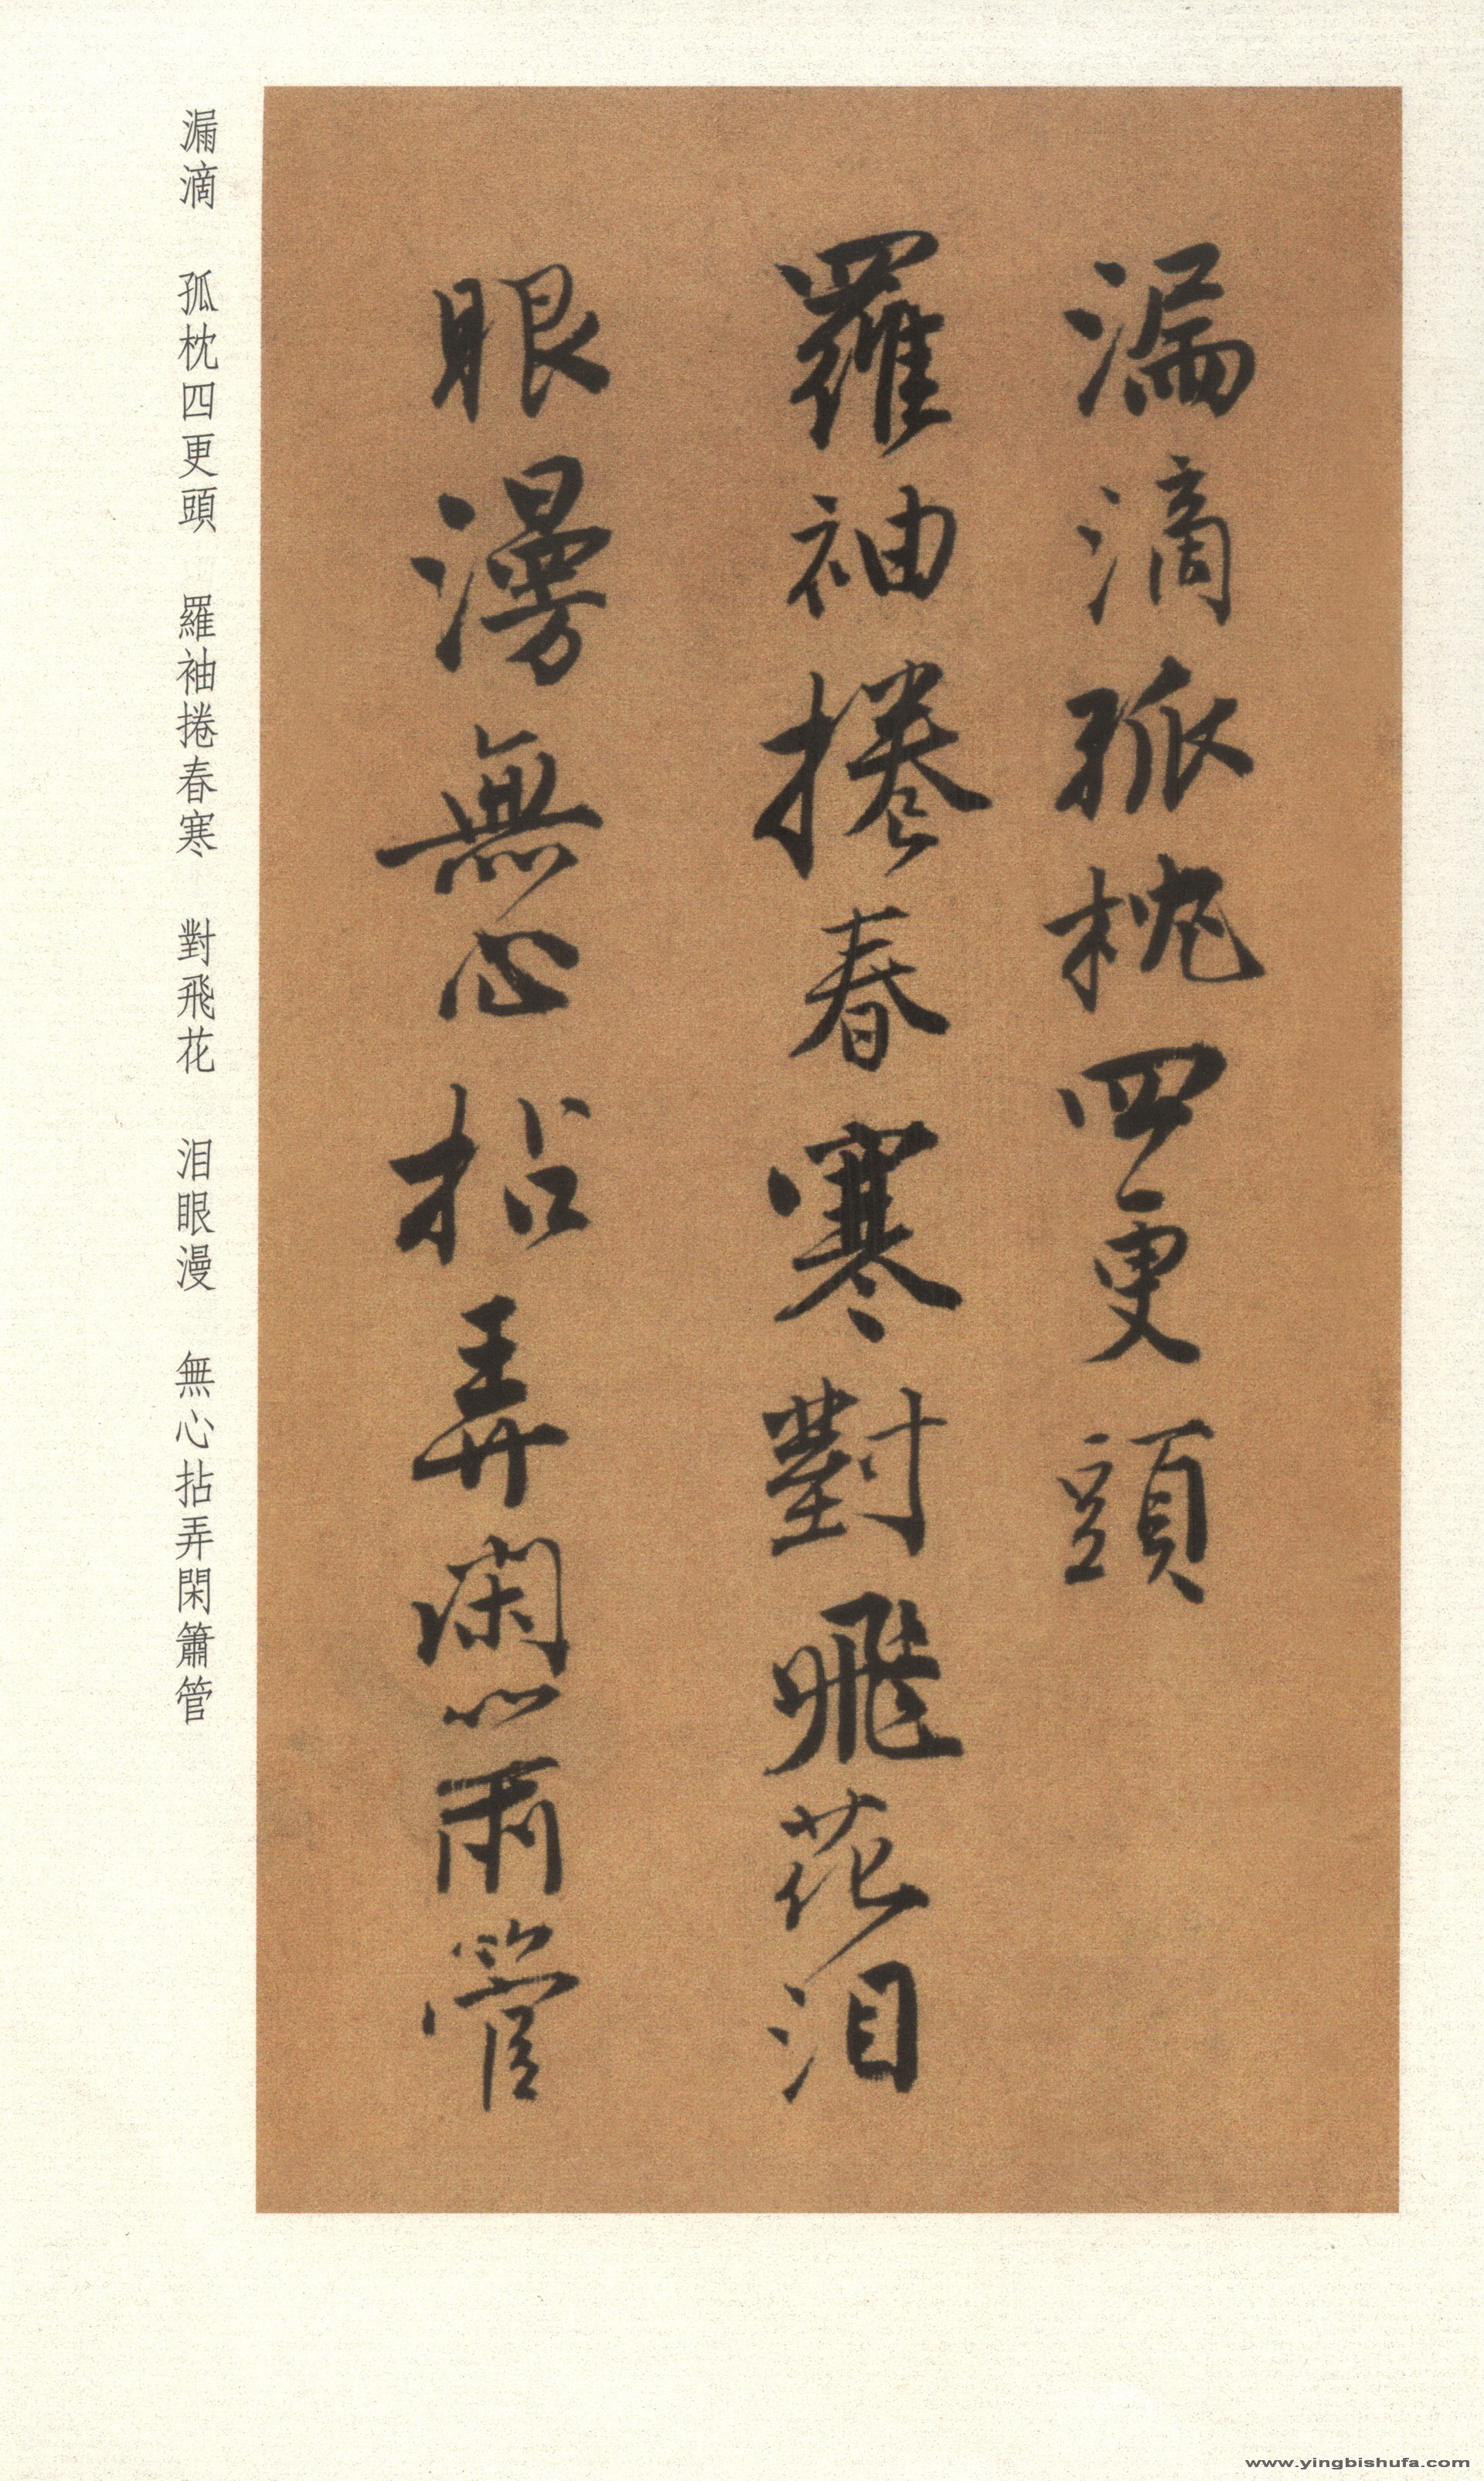 漏滴孤枕四更頭
羅袖捲春寒對飛花泪
眼漫無心拈弄閑簫管
漏滴　孤枕四更頭　羅袖捲春寒　對飛花　泪眼漫　無心拈弄閑簫管
www.yingbishufa.com